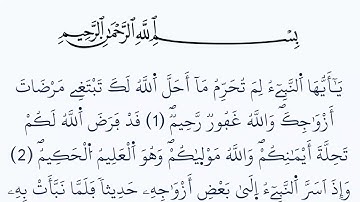 بِسْمِ اللَّهِ الرَّحْمَٰنِ الرَّحِيمِ
يَٰٓأَيُّهَا اَ۬لنَّبِےٓءُ لِمَ تُحَرِّمُ مَآ أَحَلَّ اَ۬للَّهُ لَكَ تَبْتَغِے مَرْضَاتَ
أَزْوَٰجِكَۖ وَاللَّهُ غَفُورٞ رَّحِيمٞۖ (1) قَدْ فَرَضَ اَ۬للَّهُ لَكُمْ
تَحِلَّةَ أَيْمَٰنِكُمْۖ وَاللَّهُ مَوْلَيٰكُمْۖ وَهُوَ اَ۬لْعَلِيمُ اُ۬لْحَكِيمُۖ (2)
وَإِذَ اَسَرَّ اَ۬لنَّبِےٓءُ إِلَيٰ بَعْضِ أَزْوَٰجِهِۦ حَدِيثاٗ فَلَمَّا نَبَّأَتْ بِهِۦ